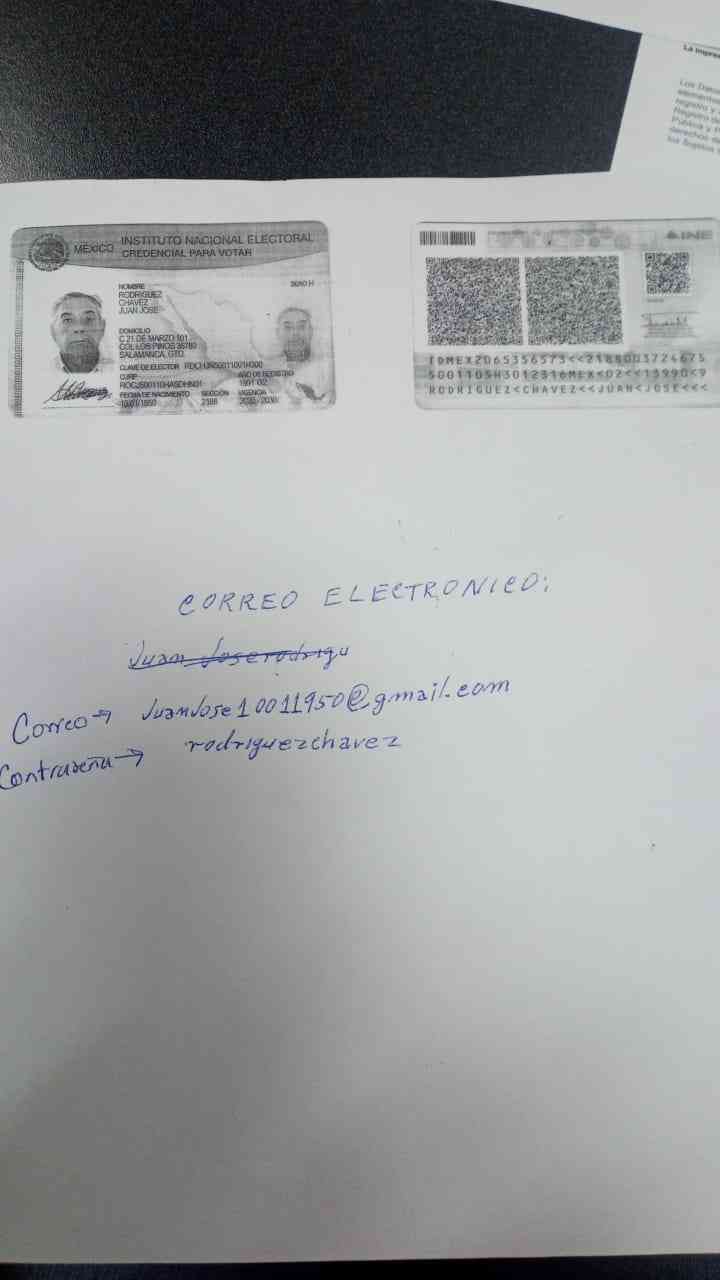 MÉXICO INSTITUTO NACIONAL ELECTORAL
CREDENCIAL PARA VOTAR
NOMBRE
SEXO H
RODRIGUEZ
CHAVEZ
JUAN JOSE
DOMICILIO
C 21 DE MARZO 101
COL LOS PINOS 36780
SALAMANCA, GTO.
CLAVE DE ELECTOR
CURP
AÑO DE REGISTRO
1991 02
FECHA DE NACIMIENTO SECCIÓN VIGENCIA
10/01/1950 2188 2020 - 2030
INE
5001105H3012316MEX<02<<13990<9
RODRIGUEZ<CHAVEZ<<JUAN<JOSE<<<
La impres
Los Datos
registro y
Registro de
Pública y
derechos de
los Sujetos
CORREO ELECTRONICO:
Juan Joserodrigu
Correo → JuanJose10011950@gmail.com
Contraseña → rodriguezchavez